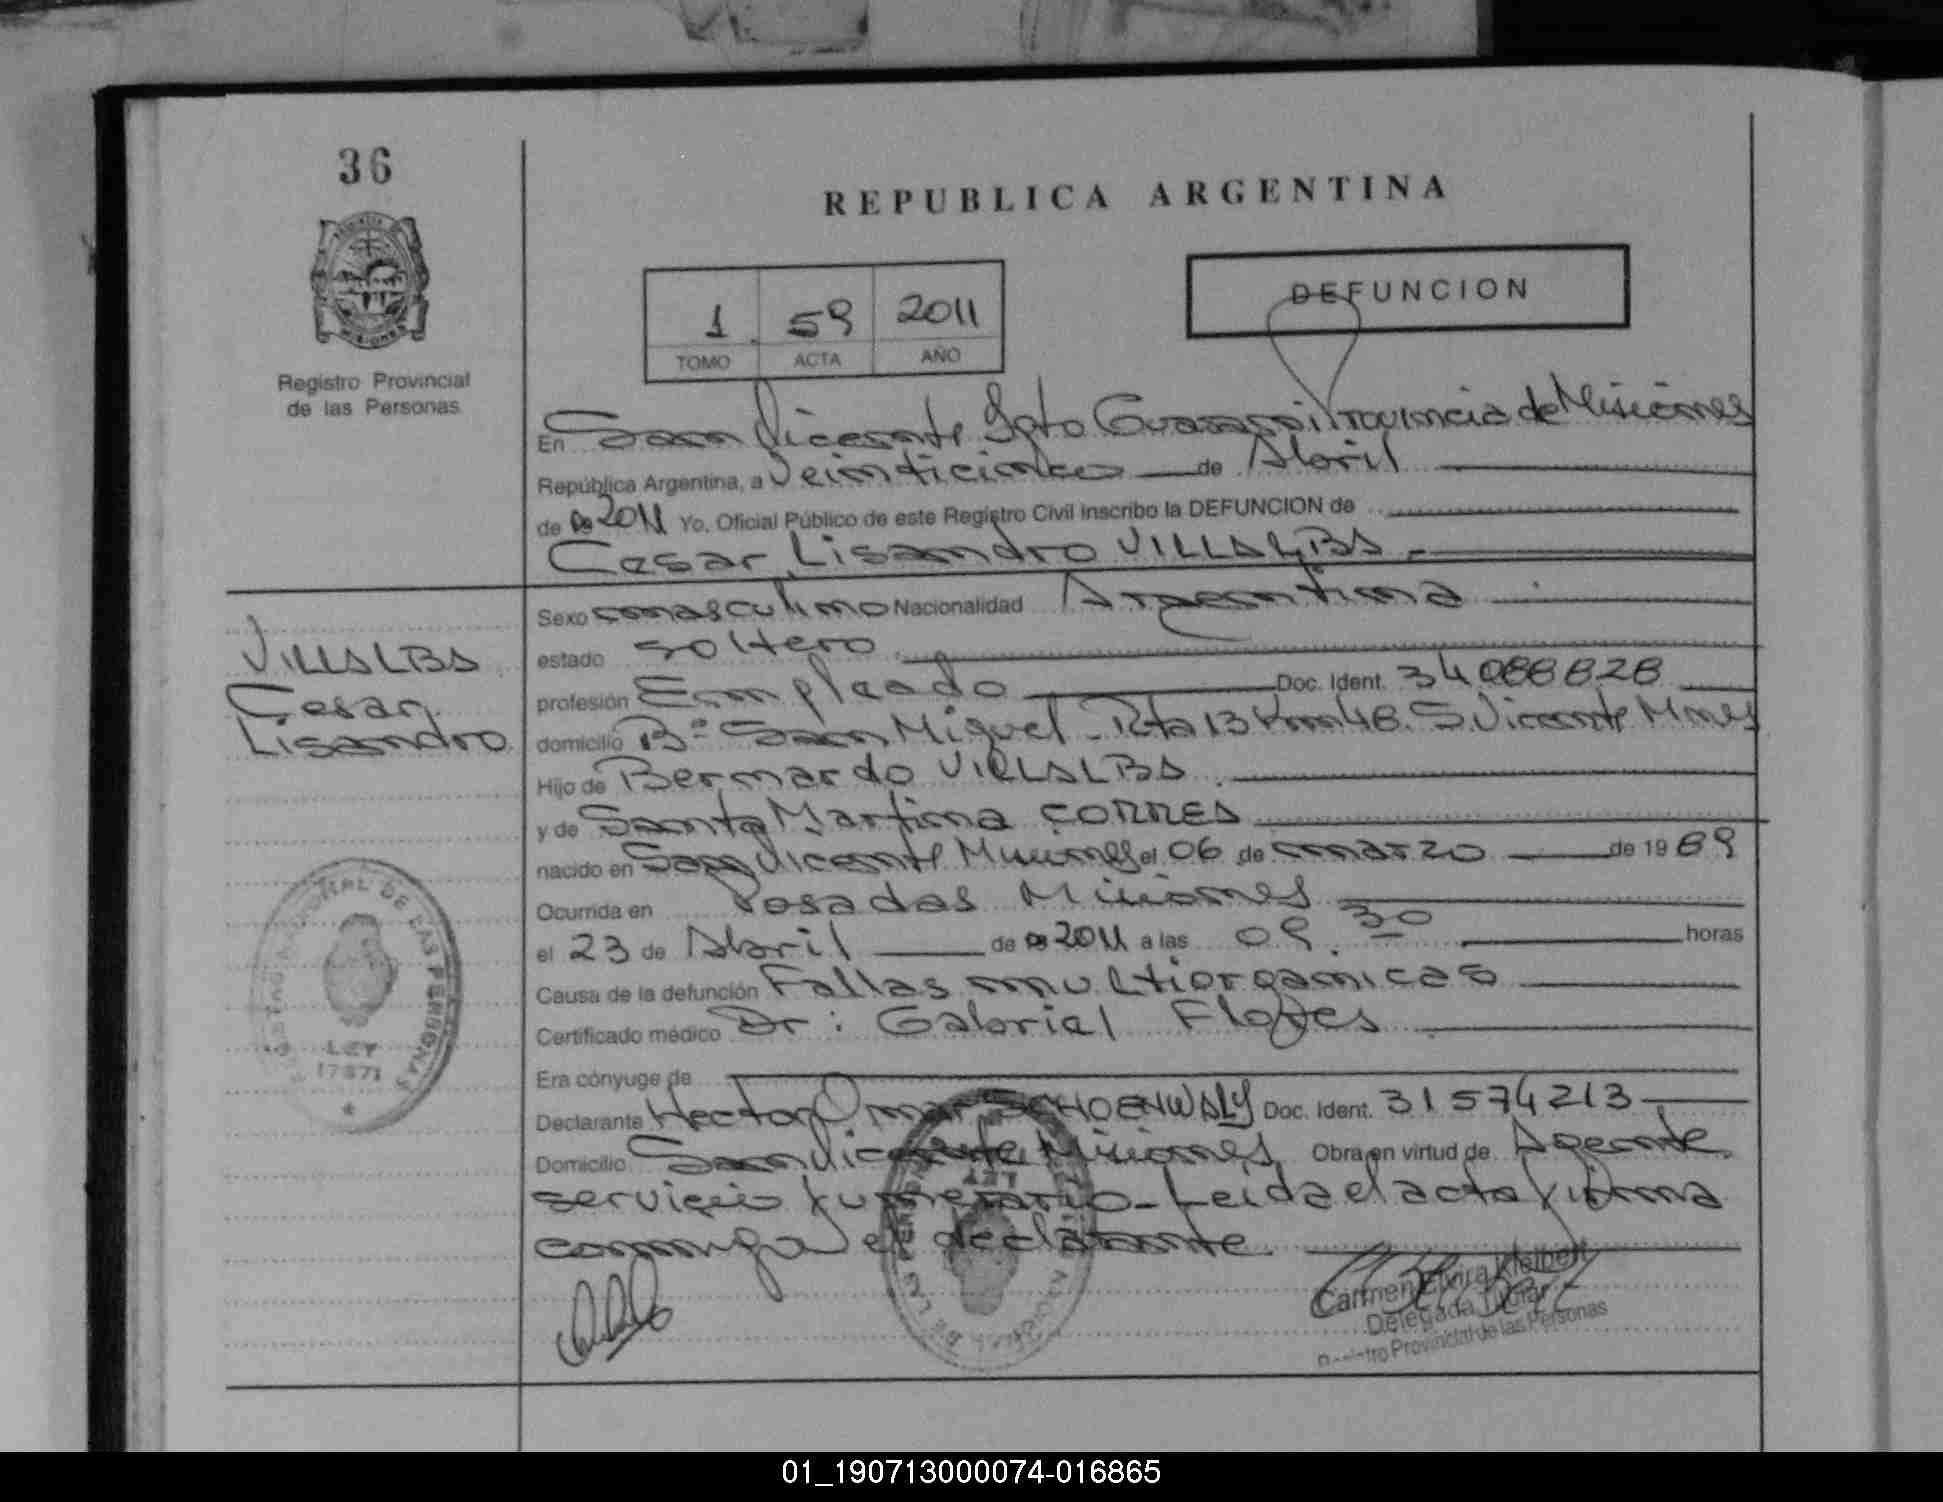 36
REPUBLICA ARGENTINA
DEFUNCION
1 59 2011
TOMO ACTA AÑO
Registro Provincial
de las Personas
En San Vicente Dpto Guarani Provincia de Misiones
República Argentina, a Veinticinco de Abril
de 2011 Yo, Oficial Público de este Registro Civil inscribo la DEFUNCION de
Cesar Lisandro VILLALBA
Sexo masculino Nacionalidad Argentina
estado soltero
profesión Empleado Doc. Ident. 34088828
domicilio Bº San Miguel - Rta 13 Km 48. S. Vicente Mnes
Hijo de Bernardo VILLALBA
y de Santa Martina CORREA
nacido en San Vicente Misiones el 06 de marzo de 1989
Ocurrida en Posadas Misiones
el 23 de Abril de 2011 a las 09.30 horas
Causa de la defunción Fallas multiorganicas
Certificado médico Dr: Gabriel Flores
Era cónyuge de
Declarante Hector Omar Doc. Ident. 31574213
Domicilio San Vicente Misiones Obra en virtud de Agente
servicio funerario - Leida el acta firma
conmigo el declarante
VILLALBA
Cesar
Lisandro
DE LAS PERSONAS
LEY
17671
Carmen Elvira Kleibert
Delegada Titular
Provincial de las Personas
01_190713000074-016865